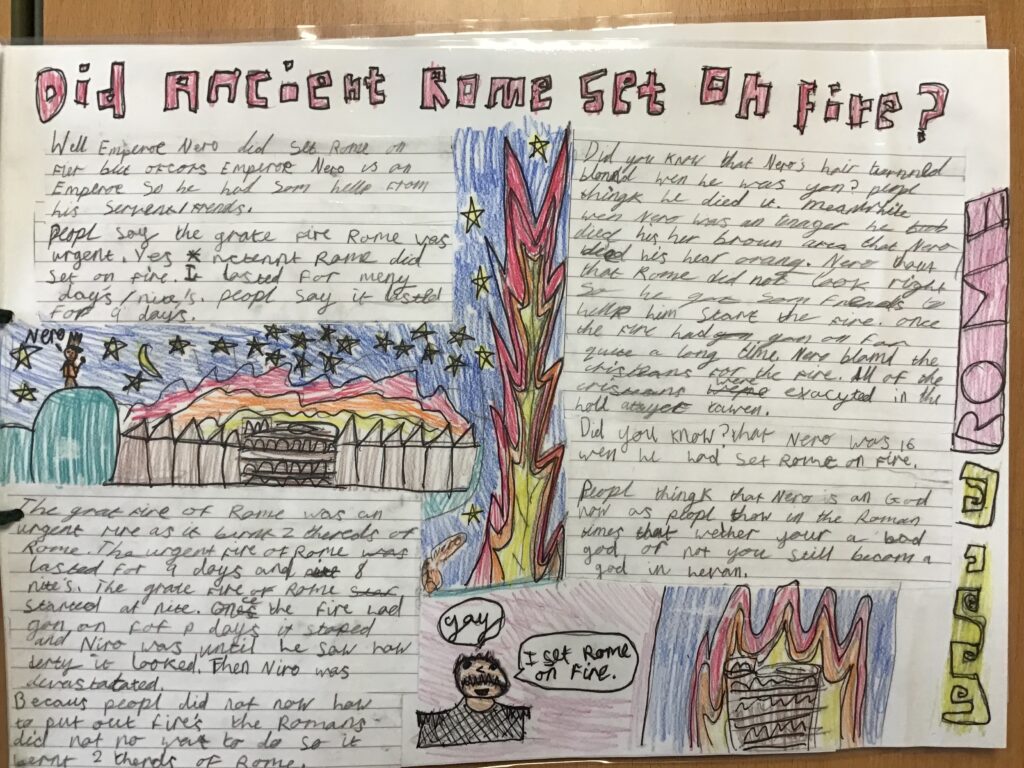 Did Ancient Rome Set On Fire?
Well Emperor Nero did set Rome on
fier but ofcors Emperor Nero is an
Emperor so he had som hellp from
his Servent/frends.
peopl say the grate fire Rome was
urgent. Yes Rome did
set on fire. It lasted for meny
day's/nite's. peopl say it lasted
for 9 days.
Nero
The grat fire of Rome was an
urgent fire as it burnt 2 thereds of
Rome. The urgent fire of Rome was
lasted for 9 days and 8
nite's. The grate fire of Rome
started at nite. the fire had
gon on for days it stoped
and Niro was until he saw how
it looked. Then Niro was
devastatated.
Becaus peopl did not now how
to put out fire's the Romans
did not no wat to do so it
burnt 2 therds of Rome.
Did you know that Nero's hair
blond wen he was yon? peopl
thingk he died it. meanwhile
wen Nero was an he
died his her broun area that Nero
his hear orang. Nero
that Rome did not look right
So he som friends to
hellp him start the fire. once
the fire had gon on for
quite a long time Nero blamd the
for the fire. All of the
were exacyted in the
hold
Did you know? that Nero was 16
wen he had set Rome on fire.
Peopl thingk that Nero is an God
now as peopl in the Roman
times that wether your a bad
god or not you still becom a
god in hevan.
gay
I set Rome
on Fire.
ROME